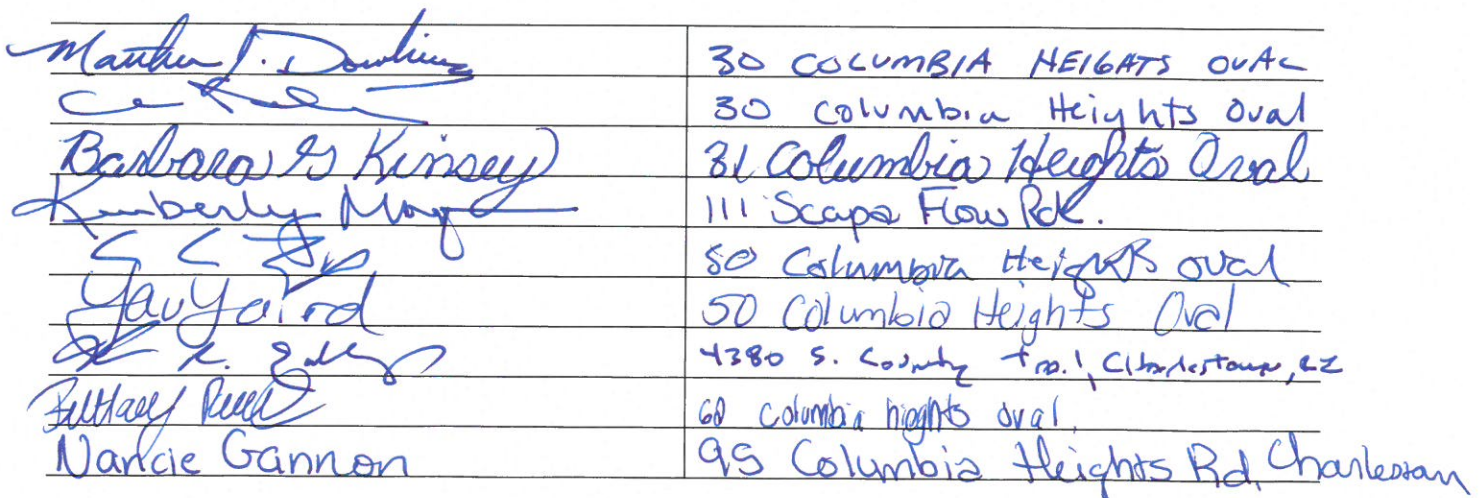 Matthew J. Dowling 30 COLUMBIA HEIGHTS OVAL
30 Columbia Heights Oval
Barbara G Kinsey 31 Columbia Heights Oval
Kimberly 111 Scapa Flow Rd.
50 Columbia Heights oval
50 Columbia Heights Oval
4380 S. County Trail, Charlestown, RI
60 Columbia hieghts oval.
Nancie Gannon 95 Columbia Heights Rd, Charlestown